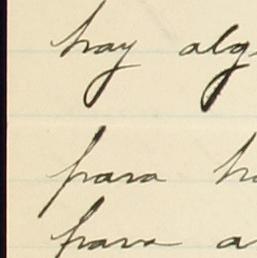 hay alg
para h
para a